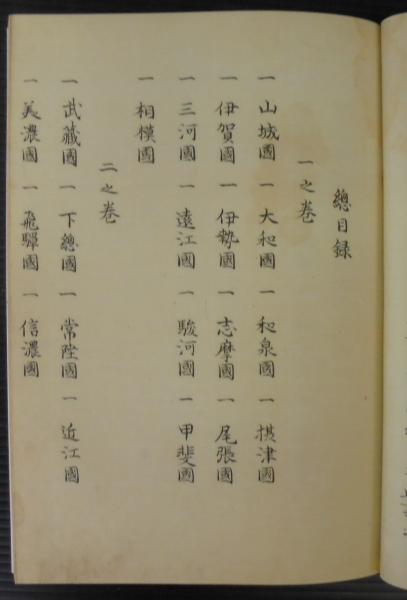 總目録
一之巻
一山城國 一大和國 一和泉國 一摂津國
一伊賀國 一伊勢國 一志摩國 一尾張國
一三河國 一遠江國 一駿河國 一甲斐國
一相模國
二之巻
一武藏國 一下總國 一常陸國 一近江國
一美濃國 一飛驒國 一信濃國